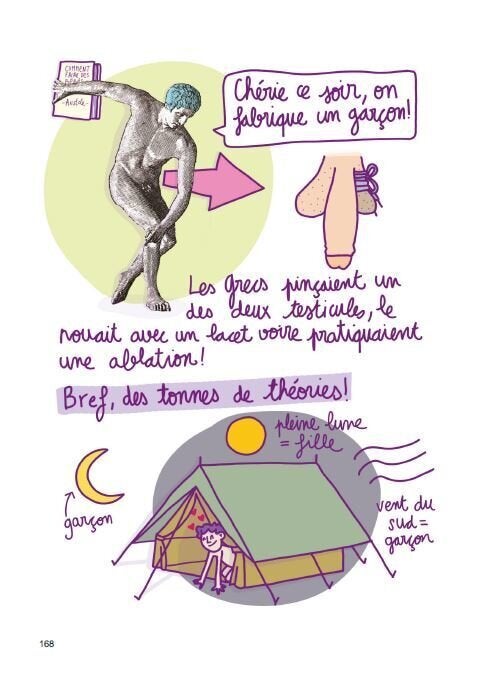 COMMENT
FAIRE DES
Aristote
Chérie ce soir, on
fabrique un garçon!
Les grecs pinçaient un
des deux testicules, le
nouait avec un lacet voire pratiquaient
une ablation!
Bref, des tonnes de théories!
pleine lune
= fille
garçon
vent du
sud =
garçon
168